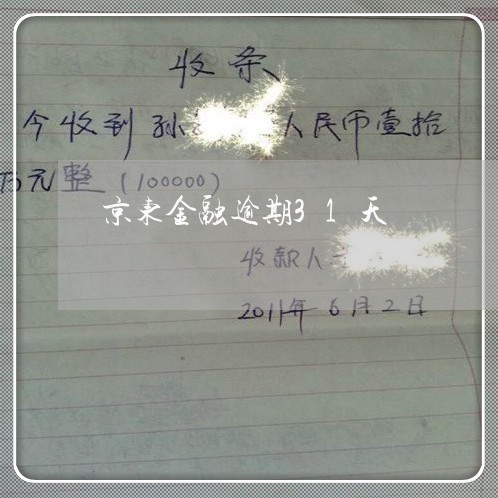 收条
今收到孙 人民币壹拾
万元整（100000）
京东金融逾期31天
收款人
2011年6月2日